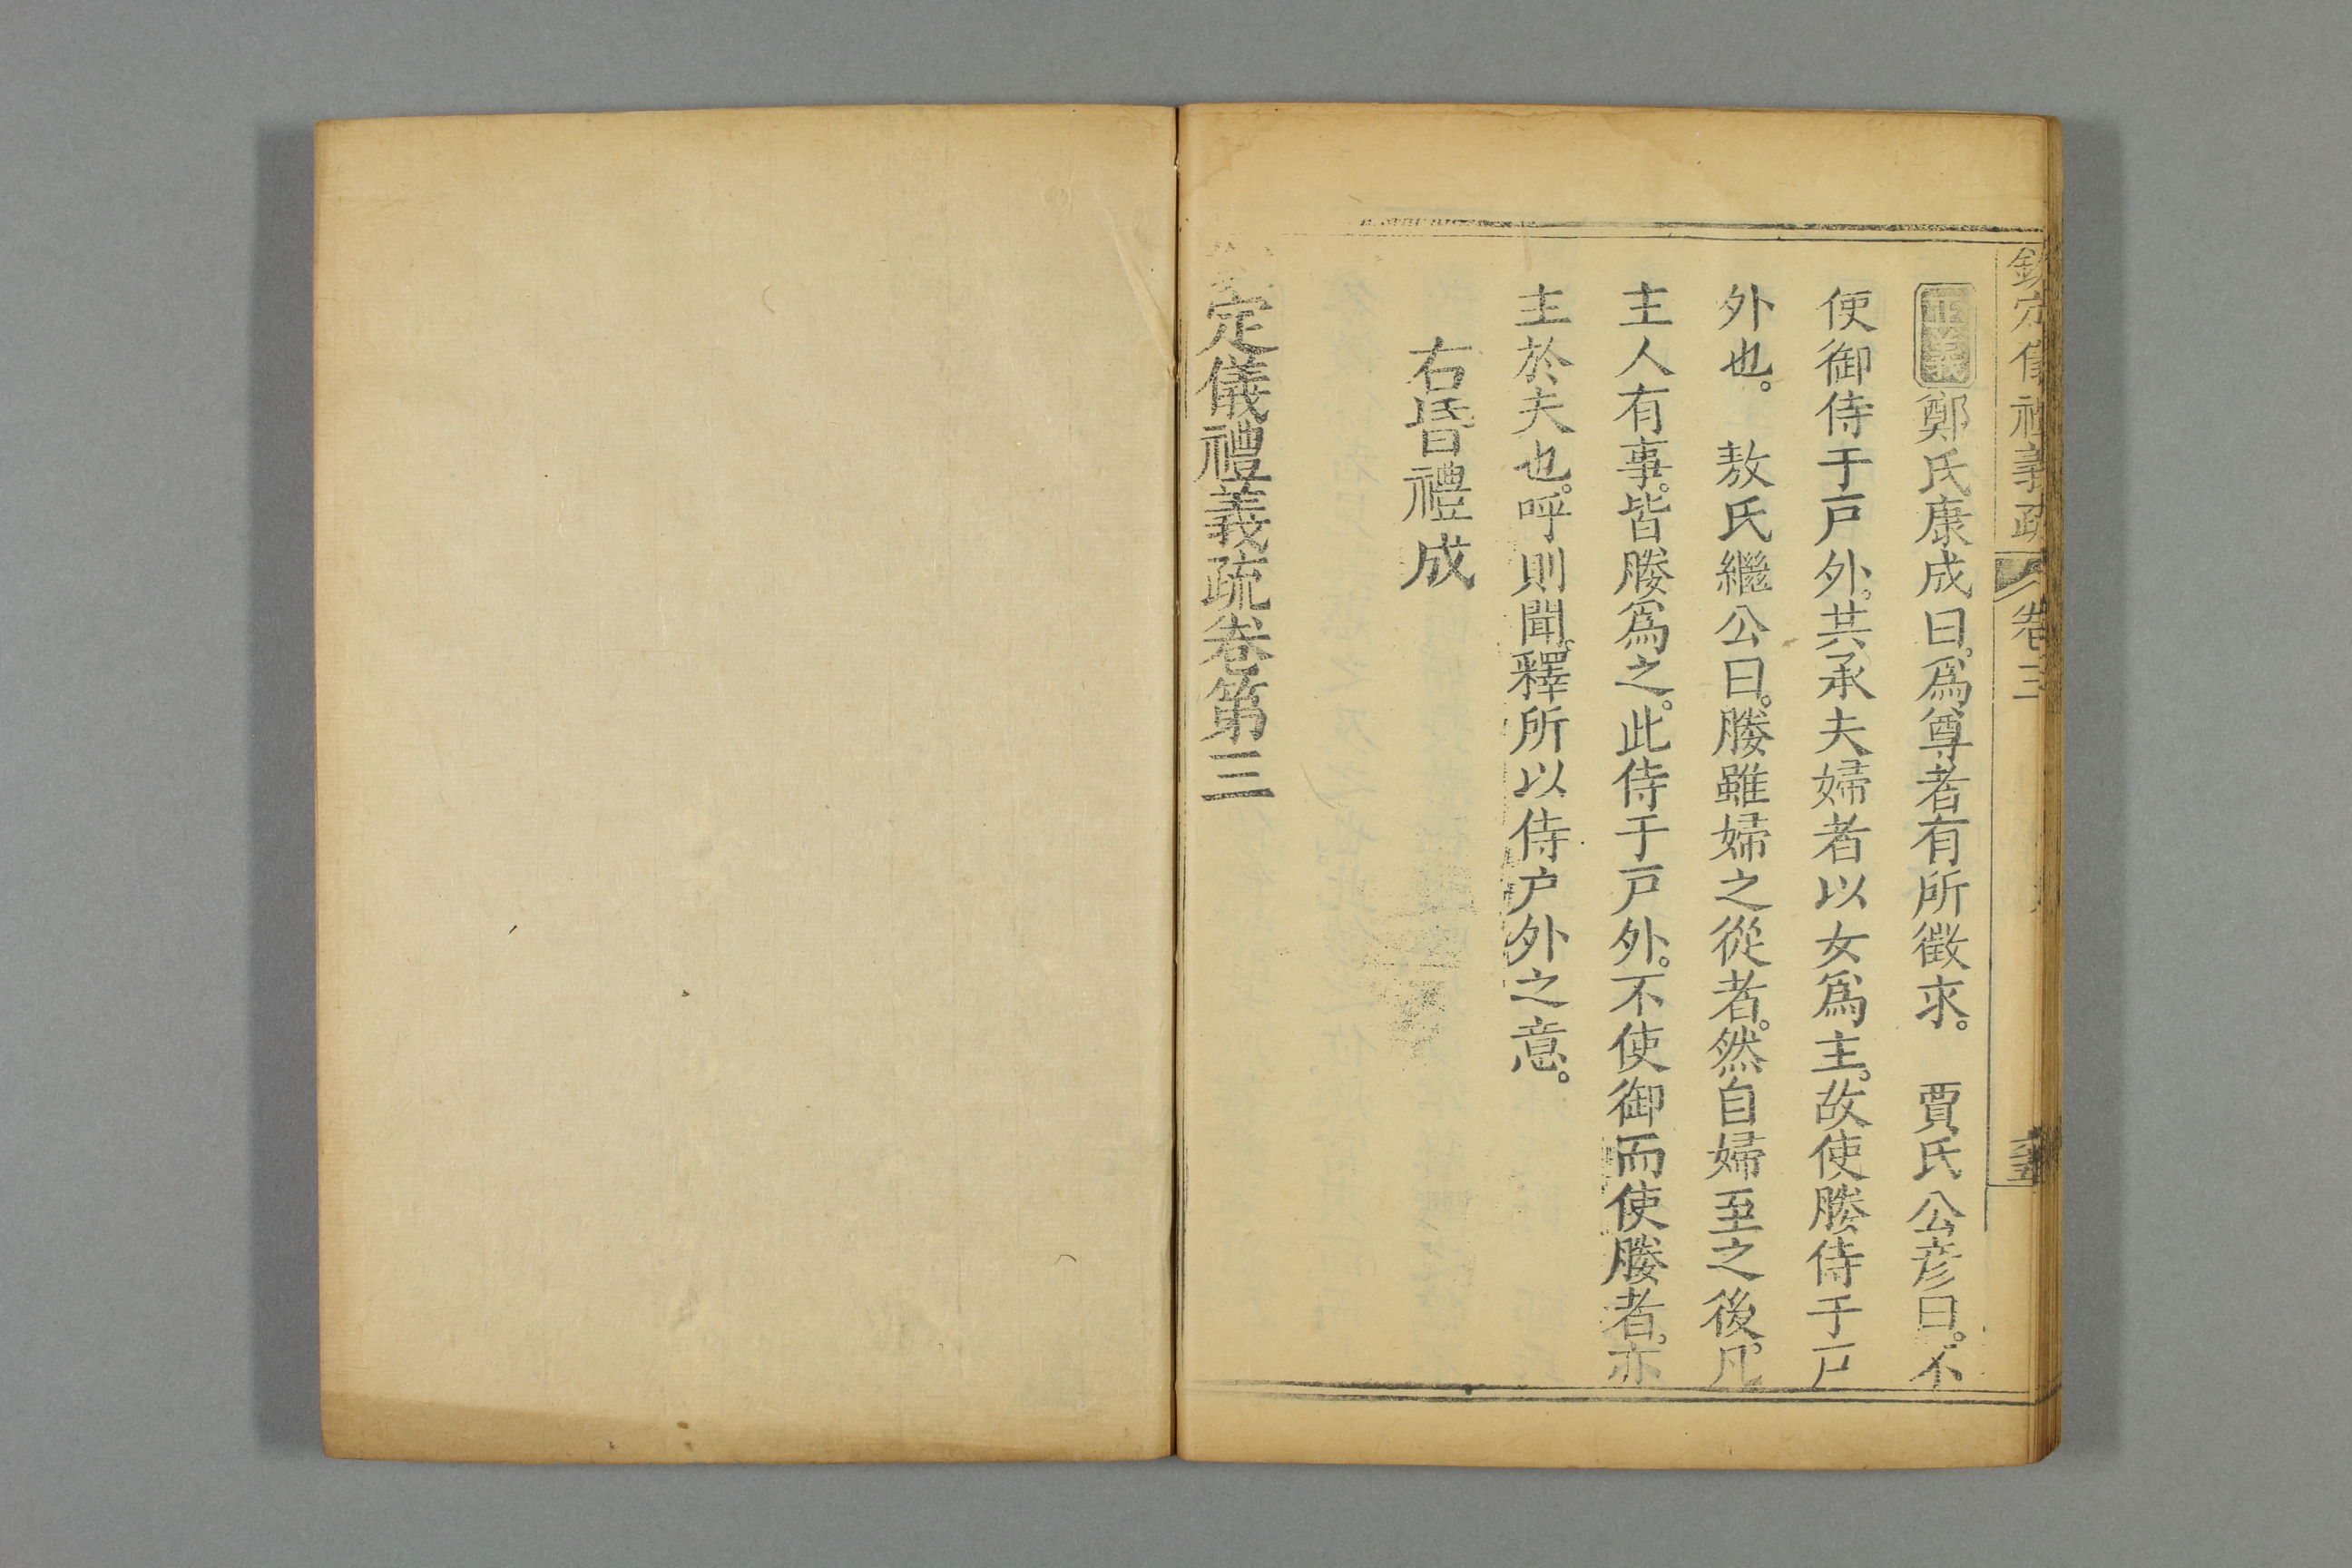 欽定儀禮義疏 卷三
正義鄭氏康成曰。爲尊者有所徵求。 賈氏公彦曰。不
使御侍于戸外。其承夫婦者以女爲主。故使媵侍于戸
外也。 敖氏繼公曰。媵雖婦之從者。然自婦至之後。凡
主人有事。皆媵爲之。此侍于戸外。不使御而使媵者。亦
主於夫也。呼則聞。釋所以侍户外之意。
右昏禮成
定儀禮義疏卷第三